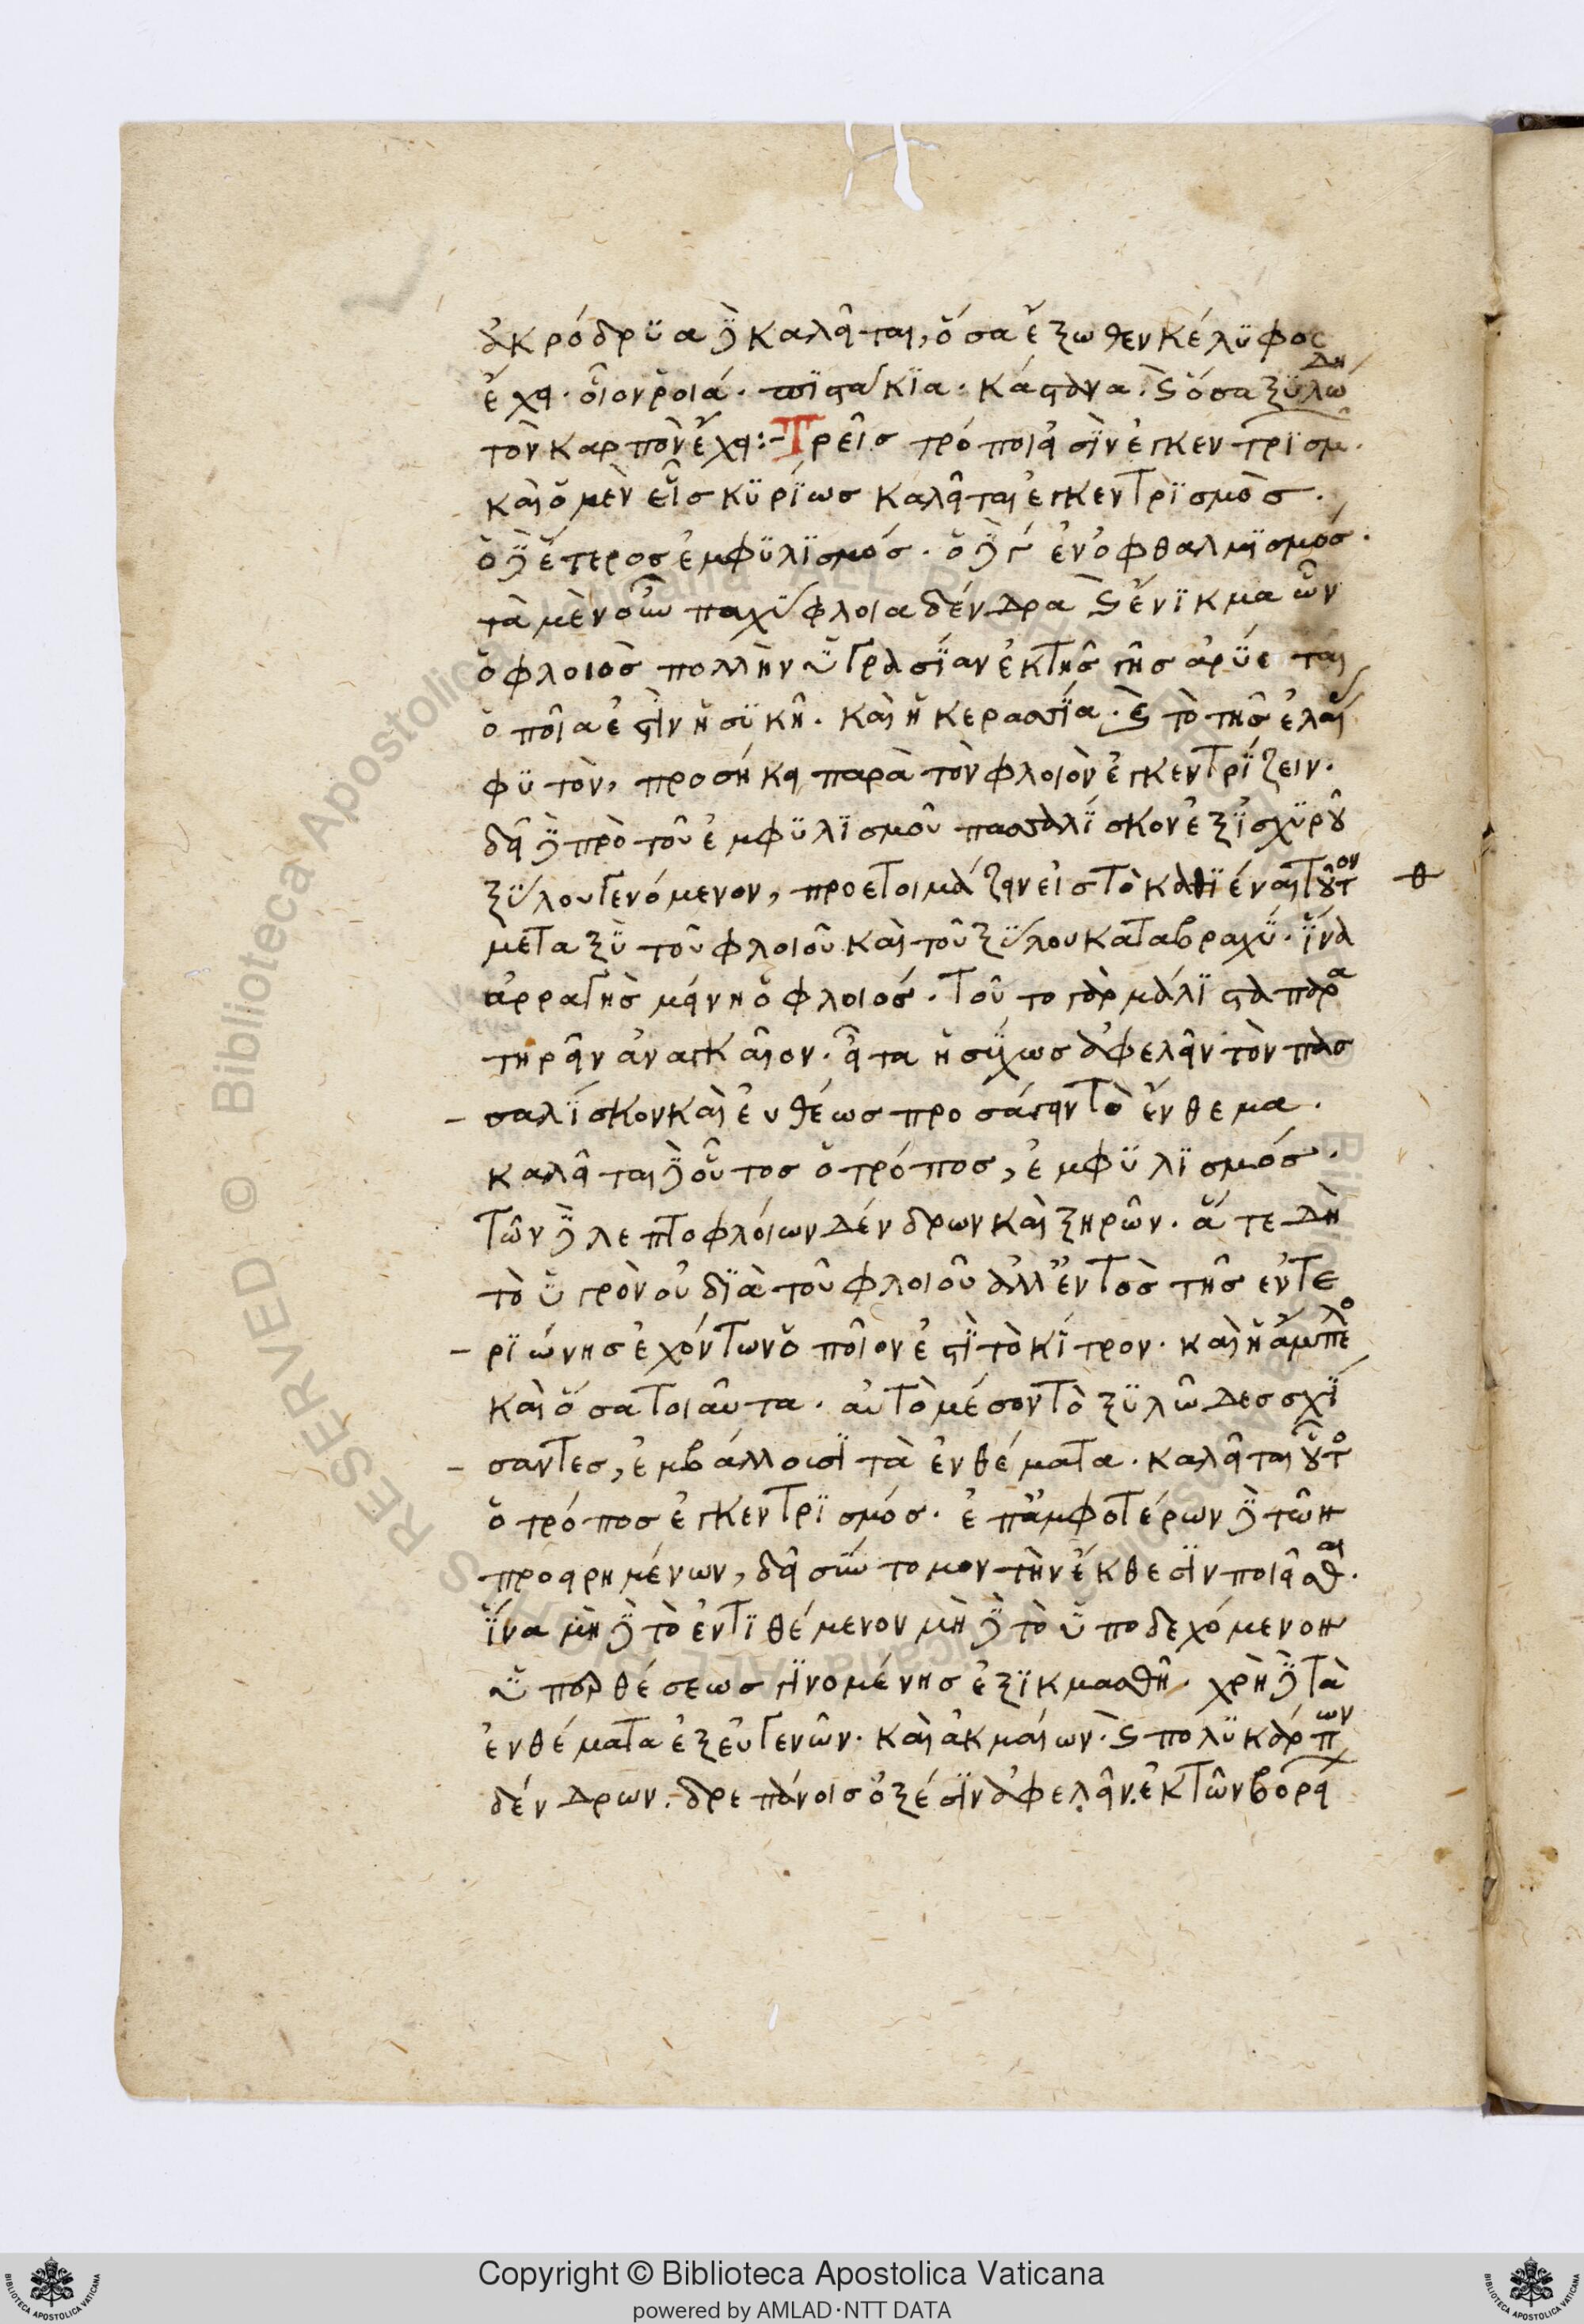 ἀκρόδρϋα δὲ καλεῖται, ὅσα ἔξωθεν κέλϋφος
ἔχει. οἷον ῥοιά. πϊστάκϊα. κάστανα. καὶ ὅσα ξϋλώδη
τὸν καρπὸν ἔχει:- Τρεῖς τρόποι εἰσὶν ἐγκεντρϊσμ.
καὶ ὁ μὲν εἷς κϋρΐως καλεῖται ἐγκεντρϊσμὸς.
ὁ δὲ ἕτερος ἐμφϋλϊσμός. ὁ δὲ γ ἐνοφθαλμϊσμός.
τὰ μὲν οὖν παχΰφλοια δένδρα καὶ ἔνϊκμα ὧν
ὁ φλοιὸς πολλὴν ὑγρασΐαν ἐκ τῆς γῆς ἀρΰεται
ὁποῖα ἐστὶν ἡ σϋκῆ. καὶ ἡ κερασΐα. καὶ τὸ τῆς ἐλαί
φϋτὸν, προσήκει παρὰ τὸν φλοιὸν ἐγκεντρΐζειν.
δεῖ δὲ πρὸ τοῦ ἐμφϋλϊσμοῦ πασσαλΐσκον ἐξ ἰσχϋροῦ
ξΰλου γενόμενον, προετοιμάζειν εἰς τὸ καθϊέναι τοῦτον
μεταξϋ τοῦ φλοιοῦ καὶ τοῦ ξΰλου καταβραχΰ. ἵνα
ἀρραγὴς μείνῃ ὁ φλοιός. τοῦτο γὰρ μάλϊστα παρα
τηρεῖν ἀναγκαῖον. εἶτα ἡσΰχως ἀφελεῖν τὸν πασ
σαλΐσκον καὶ εὐθέως προσάγειν τὸ ἔνθεμα.
καλεῖται δὲ οὗτος ὁ τρόπος, ἐμφϋλϊσμός.
τῶν δὲ λεπτοφλοίων δένδρων καὶ ξηρῶν. ἅτε δὴ
τὸ ὑγρὸν οὐ δϊὰ τοῦ φλοιοῦ ἀλλ' ἐντὸς τῆς ἐντε
ρϊώνης ἐχόντων ὁποῖον ἐστΐ τὸ κΐτρον. καὶ ἡ ἄμπελο
καὶ ὅσα τοιαῦτα. αὐτὸ μέσον τὸ ξϋλῶδες σχΐ
σαντες, ἐμβάλλουσϊ τὰ ἐνθέματα. καλεῖται οὗτο
ὁ τρόπος ἐγκεντρϊσμός. ἐπ' ἀμφοτέρων δὲ τῶν
προειρημένων, δεῖ σύντομον τὴν ἔκθεσϊν ποιεῖσθαι.
ἵνα μὴ δὲ τὸ ἐντϊθέμενον μὴ δὲ τὸ ὑποδεχόμενον
ὑπερθέσεως γϊνομένης ἐξϊκμασθῆ. χρὴ δὲ τὰ
ἐνθέματα ἐξ εὐγενῶν. καὶ ἀκμαίων. καὶ πολϋκάρπων
δένδρων. δρεπάνοις ὀξέσϊν ἀφελεῖν. ἐκ τῶν βορεί